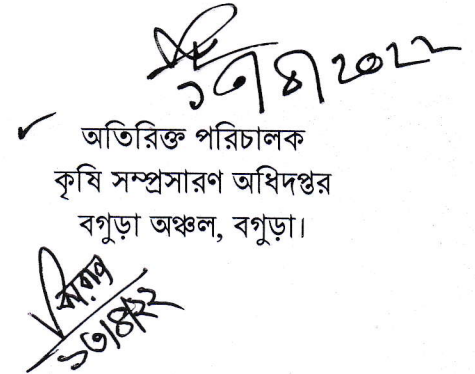 ১৩/৪/২০২২
অতিরিক্ত পরিচালক
কৃষি সম্প্রসারণ অধিদপ্তর
বগুড়া অঞ্চল, বগুড়া।
১৩/৪/২২